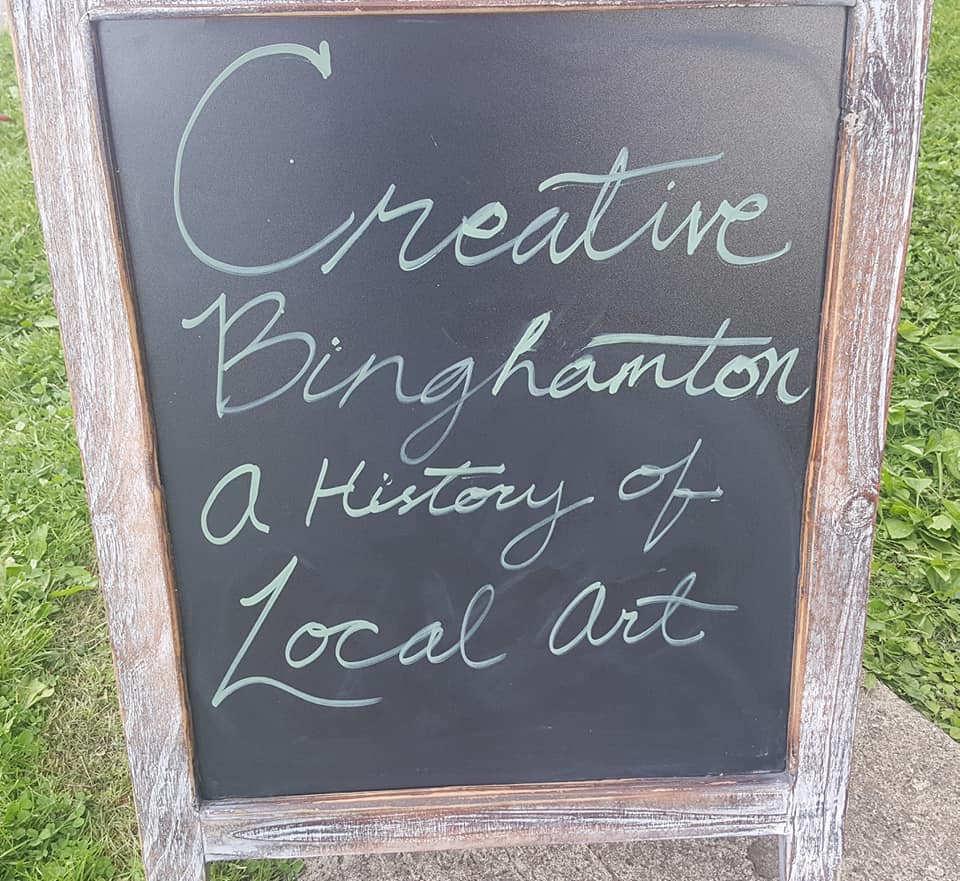 Creative
Binghamton
A History of
Local Art